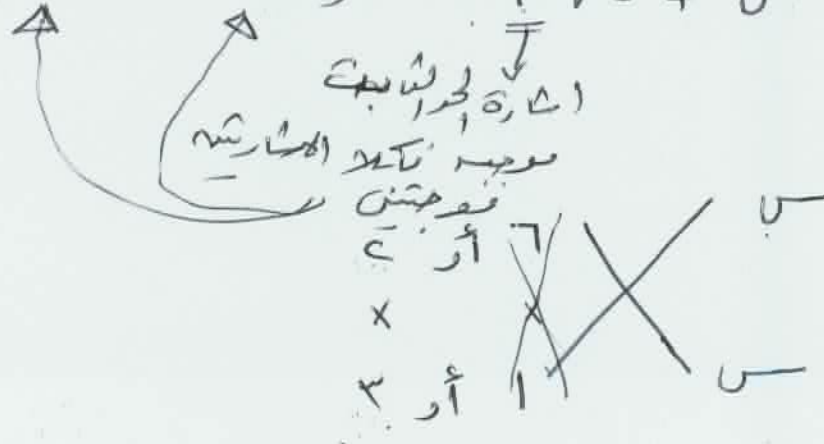 اشارة الحد الثابت
موجبه فكلا الاشارتين
موجبتين
س ٦ أو ٢
× ×
س ١ أو ٣